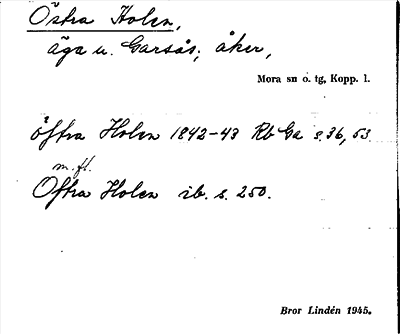 Östra Holen,
äga u. Garsås; åker,
Mora sn o. tg, Kopp. l.
öftra Holen 1842-43 Rb Ga s. 36, 53.
m. fl.
Oftra Holen ib. s. 250.
Bror Lindén 1945.